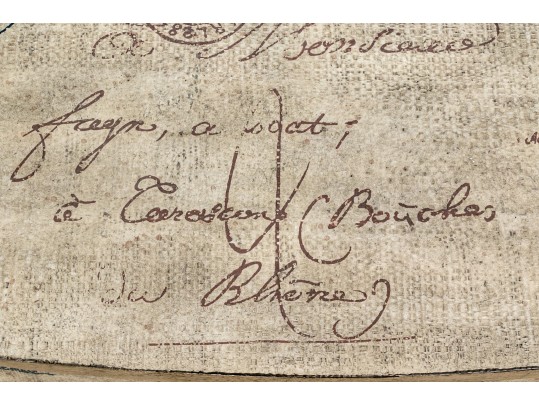 à Monsieur
fayn, avocat;
à Tarascon (Bouches
du Rhône)